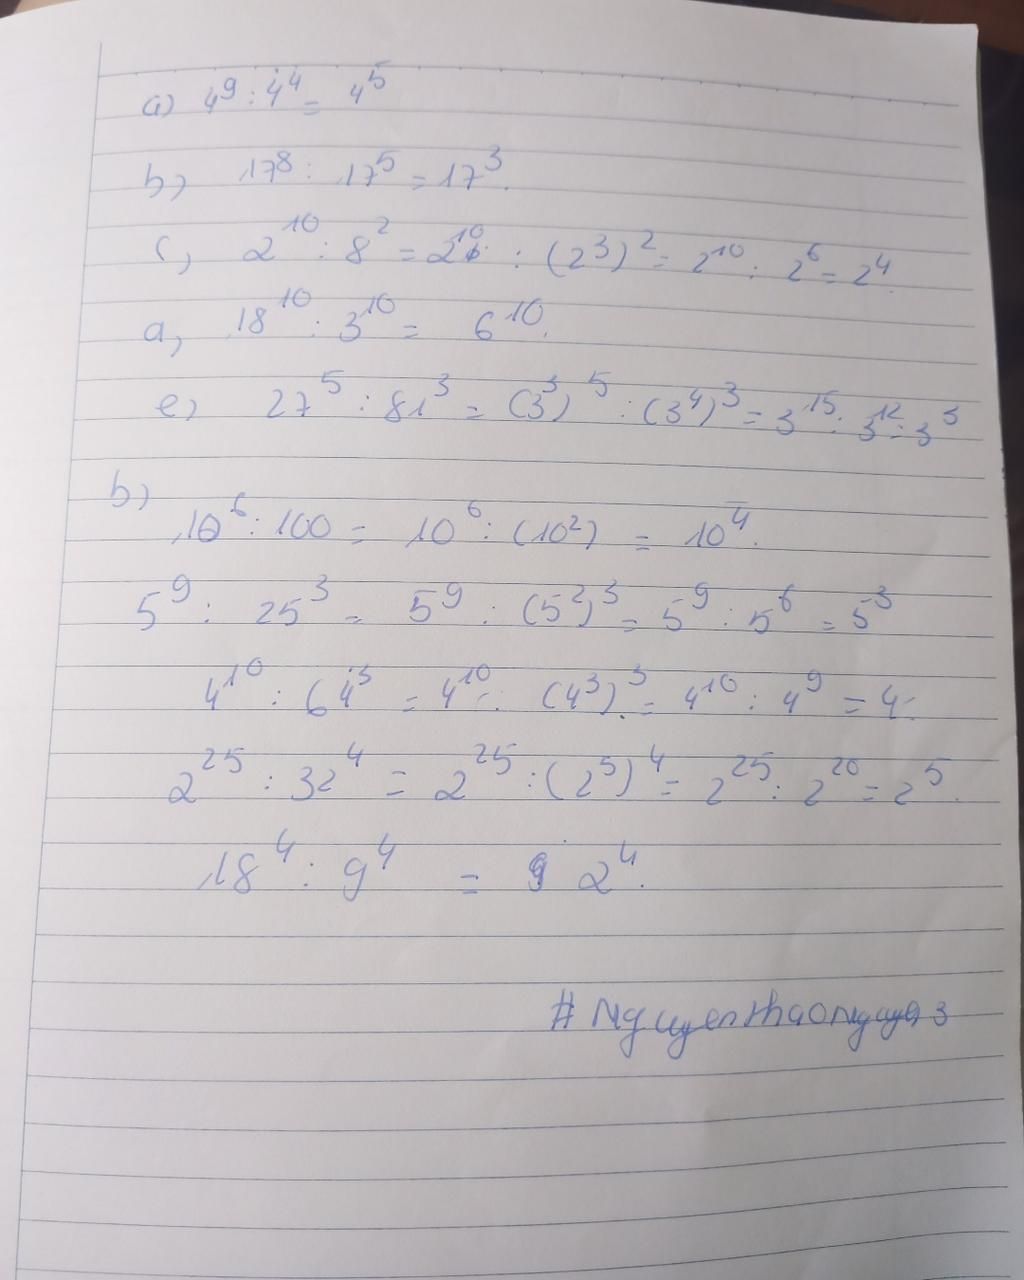 a) 4⁹ : 4⁴ = 4⁵
b) 17⁸ : 17⁵ = 17³.
c) 2¹⁰ : 8² = 2¹⁰ : (2³)² = 2¹⁰ : 2⁶ = 2⁴.
a, 18¹⁰ : 3¹⁰ = 6¹⁰.
e) 27⁵ : 81³ = (3³)⁵ : (3⁴)³ = 3¹⁵ : 3¹² = 3³
b)
10⁶ : 100 = 10⁶ : (10²) = 10⁴.
5⁹ : 25³ = 5⁹ : (5²)³ = 5⁹ : 5⁶ = 5³
4¹⁰ : 64³ = 4¹⁰ : (4³)³ = 4¹⁰ : 4⁹ = 4.
2²⁵ : 32⁴ = 2²⁵ : (2⁵)⁴ = 2²⁵ : 2²⁰ = 2⁵.
18⁴ : 9⁴ = 2⁴.